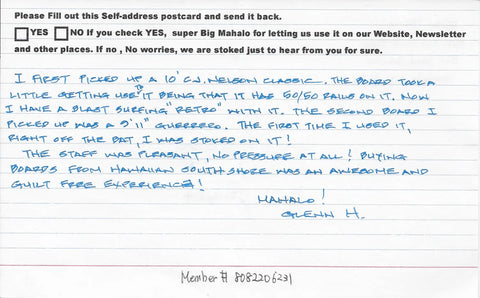 Please Fill out this Self-address postcard and send it back.
YES NO If you check YES, super Big Mahalo for letting us use it on our Website, Newsletter
and other places. If no , No worries, we are stoked just to hear from you for sure.
I FIRST PICKED UP A 10' C.J. NELSON CLASSIC. THE BOARD TOOK A
LITTLE GETTING USE TO IT BEING THAT IT HAS 50/50 RAILS ON IT. NOW
I HAVE A BLAST SURFING "RETRO" WITH IT. THE SECOND BOARD I
PICKED UP WAS A 9'11" GUERRERO. THE FIRST TIME I USED IT,
RIGHT OFF THE BAT, I WAS STOKED ON IT!
THE STAFF WAS PLEASANT, NO PRESSURE AT ALL! BUYING
BOARDS FROM HAWAIIAN SOUTH SHORE WAS AN AWESOME AND
GUILT FREE EXPERIENCE!
MAHALO!
GLENN H.
Member # 8082206231